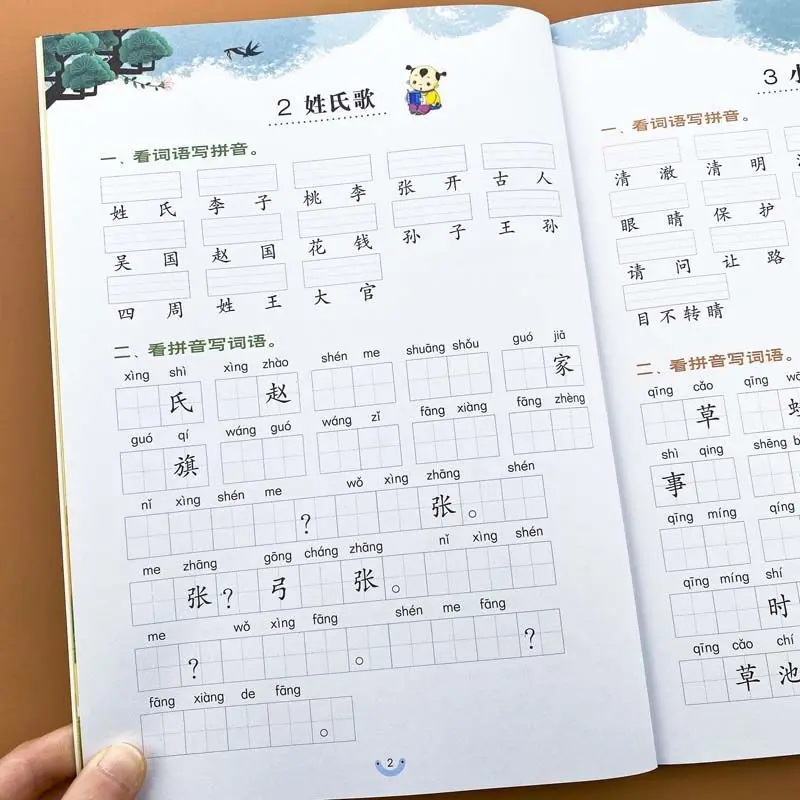 2 姓氏歌
一、看词语写拼音。
姓 氏 李 子 桃 李 张 开 古 人
吴 国 赵 国 花 钱 孙 子 王 孙
四 周 姓 王 大 官
二、看拼音写词语。
xìng shì xìng zhào shén me shuāng shǒu guó jiā
氏 赵 家
guó qí wáng guó wáng zǐ fāng xiàng fāng zhèng
旗
nǐ xìng shén me wǒ xìng zhāng shén
? 张 。
me zhāng gōng cháng zhāng nǐ xìng shén
张 ? 弓 张 。
me wǒ xìng fāng shén me fāng
? 。 ?
fāng xiàng de fāng
。
2
3 小
一、看词语写拼音。
清 澈 清 明
眼 睛 保 护
请 问 让 路
目 不 转 睛
二、看拼音写词语。
qīng cǎo qīng
草
shì qing shēng
事
qīng míng
qīng míng shí
时
qīng cǎo chí
草 池